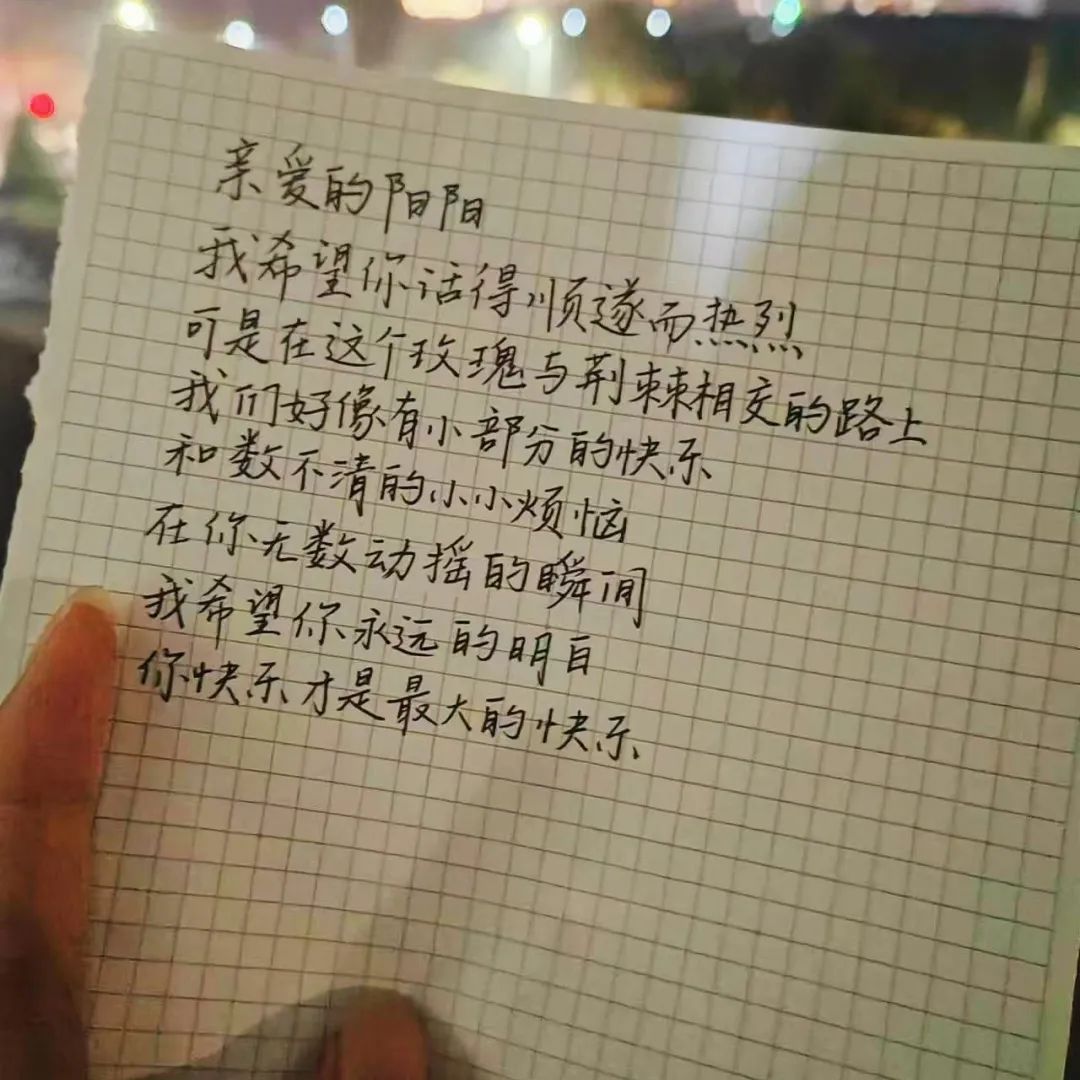 亲爱的阳阳
我希望你活得顺遂而热烈
可是在这个玫瑰与荆棘相交的路上
我们好像有小部分的快乐
和数不清的小小烦恼
在你无数动摇的瞬间
我希望你永远的明白
你快乐才是最大的快乐